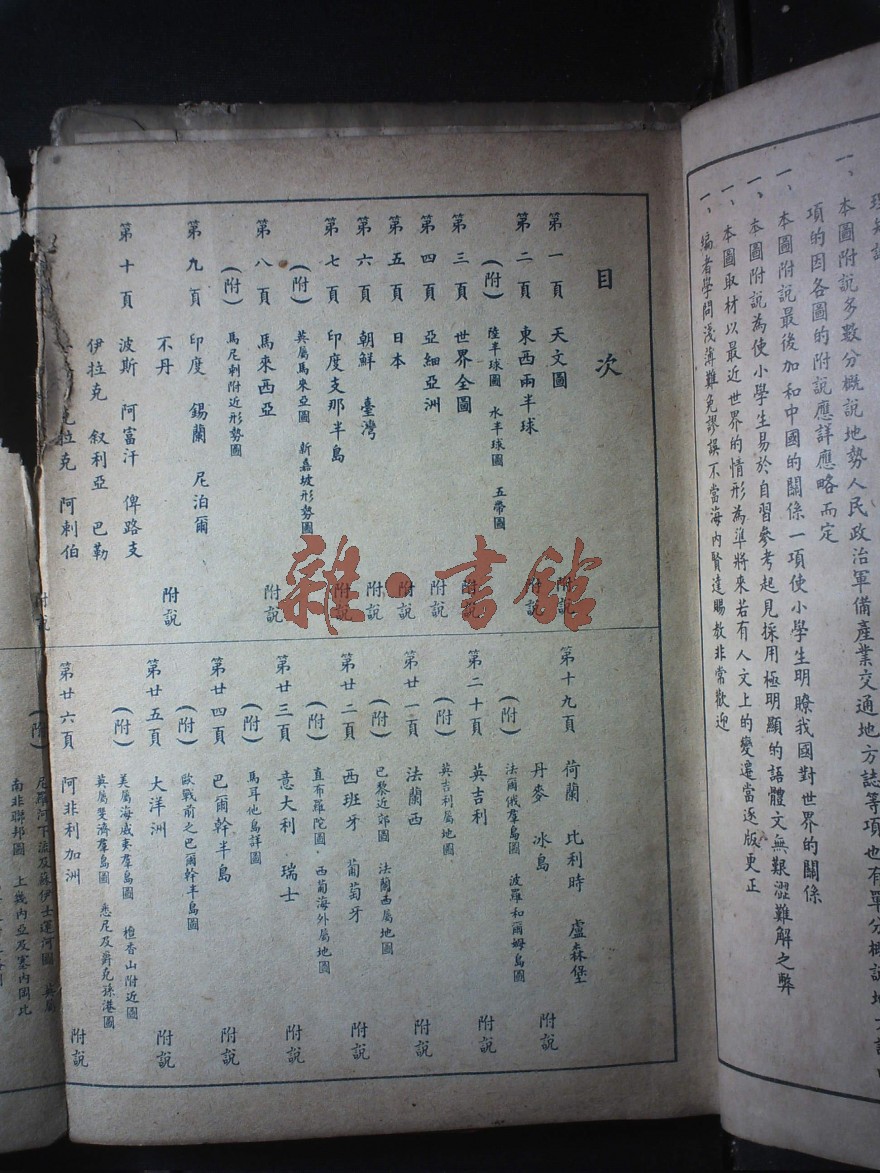 本圖附說多數分概說地勢人民政治軍備產業交通地方誌等項也有單分概說地方誌
項的因各圖的附說應詳應略而定
一、本圖附說最後加和中國的關係一項使小學生明瞭我國對世界的關係
一、本圖附說為使小學生易於自習參考起見採用極明顯的語體文無艱澀難解之弊
一、本圖取材以最近世界的情形為準將來若有人文上的變遷當逐版更正
一、編者學問淺薄難免謬誤不當海內賢達賜教非常歡迎
目次
第一頁 天文圖 附說
第二頁 東西兩半球 附說
(附) 陸半球圖 水半球圖 五帶圖
第三頁 世界全圖 附說
第四頁 亞細亞洲 附說
第五頁 日本 附說
第六頁 朝鮮 臺灣 附說
第七頁 印度支那半島 附說
(附) 英屬馬來亞圖 新嘉坡形勢圖
第八頁 馬來西亞 附說
(附) 馬尼剌附近形勢圖
第九頁 印度 錫蘭 尼泊爾
不丹 附說
第十頁 波斯 阿富汗 俾路支
伊拉克 敘利亞 巴勒
拉克 阿剌伯
附說
第十九頁 荷蘭 比利時 盧森堡
丹麥 冰島 附說
(附) 法爾俄羣島圖 波羅和爾姆島圖
第二十頁 英吉利 附說
(附) 英吉利屬地圖
第廿一頁 法蘭西 附說
(附) 巴黎近郊圖 法蘭西屬地圖
第廿二頁 西班牙 葡萄牙 附說
(附) 直布羅陀圖 西葡海外屬地圖
第廿三頁 意大利 瑞士 附說
(附) 馬耳他島詳圖
第廿四頁 巴爾幹半島 附說
(附) 歐戰前之巴爾幹半島圖
第廿五頁 大洋洲 附說
(附) 美屬海威夷羣島圖 檀香山附近圖
英屬斐濟羣島圖 悉尼及爵克孫港圖
第廿六頁 阿非利加洲 附說
(附) 尼羅河下流及蘇伊士運河圖 英屬
南非聯邦圖 上幾內亞及塞內岡比
雜·書館